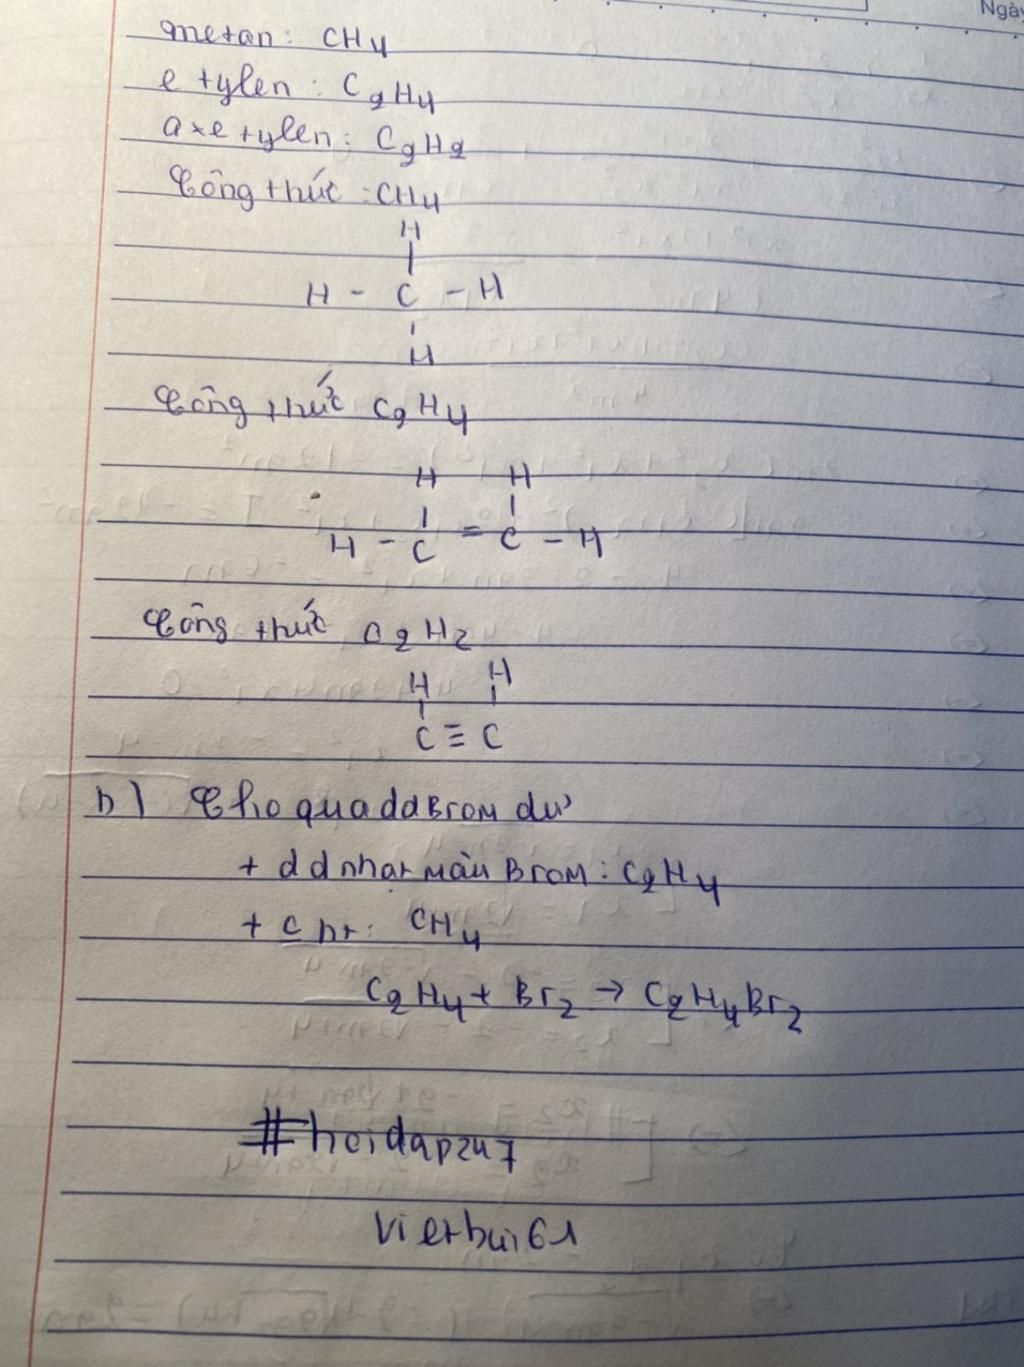 Ngày
metan: CH4
etylen: C2H4
axetylen: C2H2
Công thức: CH4
H
H - C - H
H
Công thức C2H4
H H
H - C = C - H
Công thức C2H2
H H
C ≡ C
b) Cho qua dd Brom dư
+ dd nhạt màu Brom: C2H4
+ C ht: CH4
C2H4 + Br2 → C2H4Br2
#hoidap247
Vietbui61